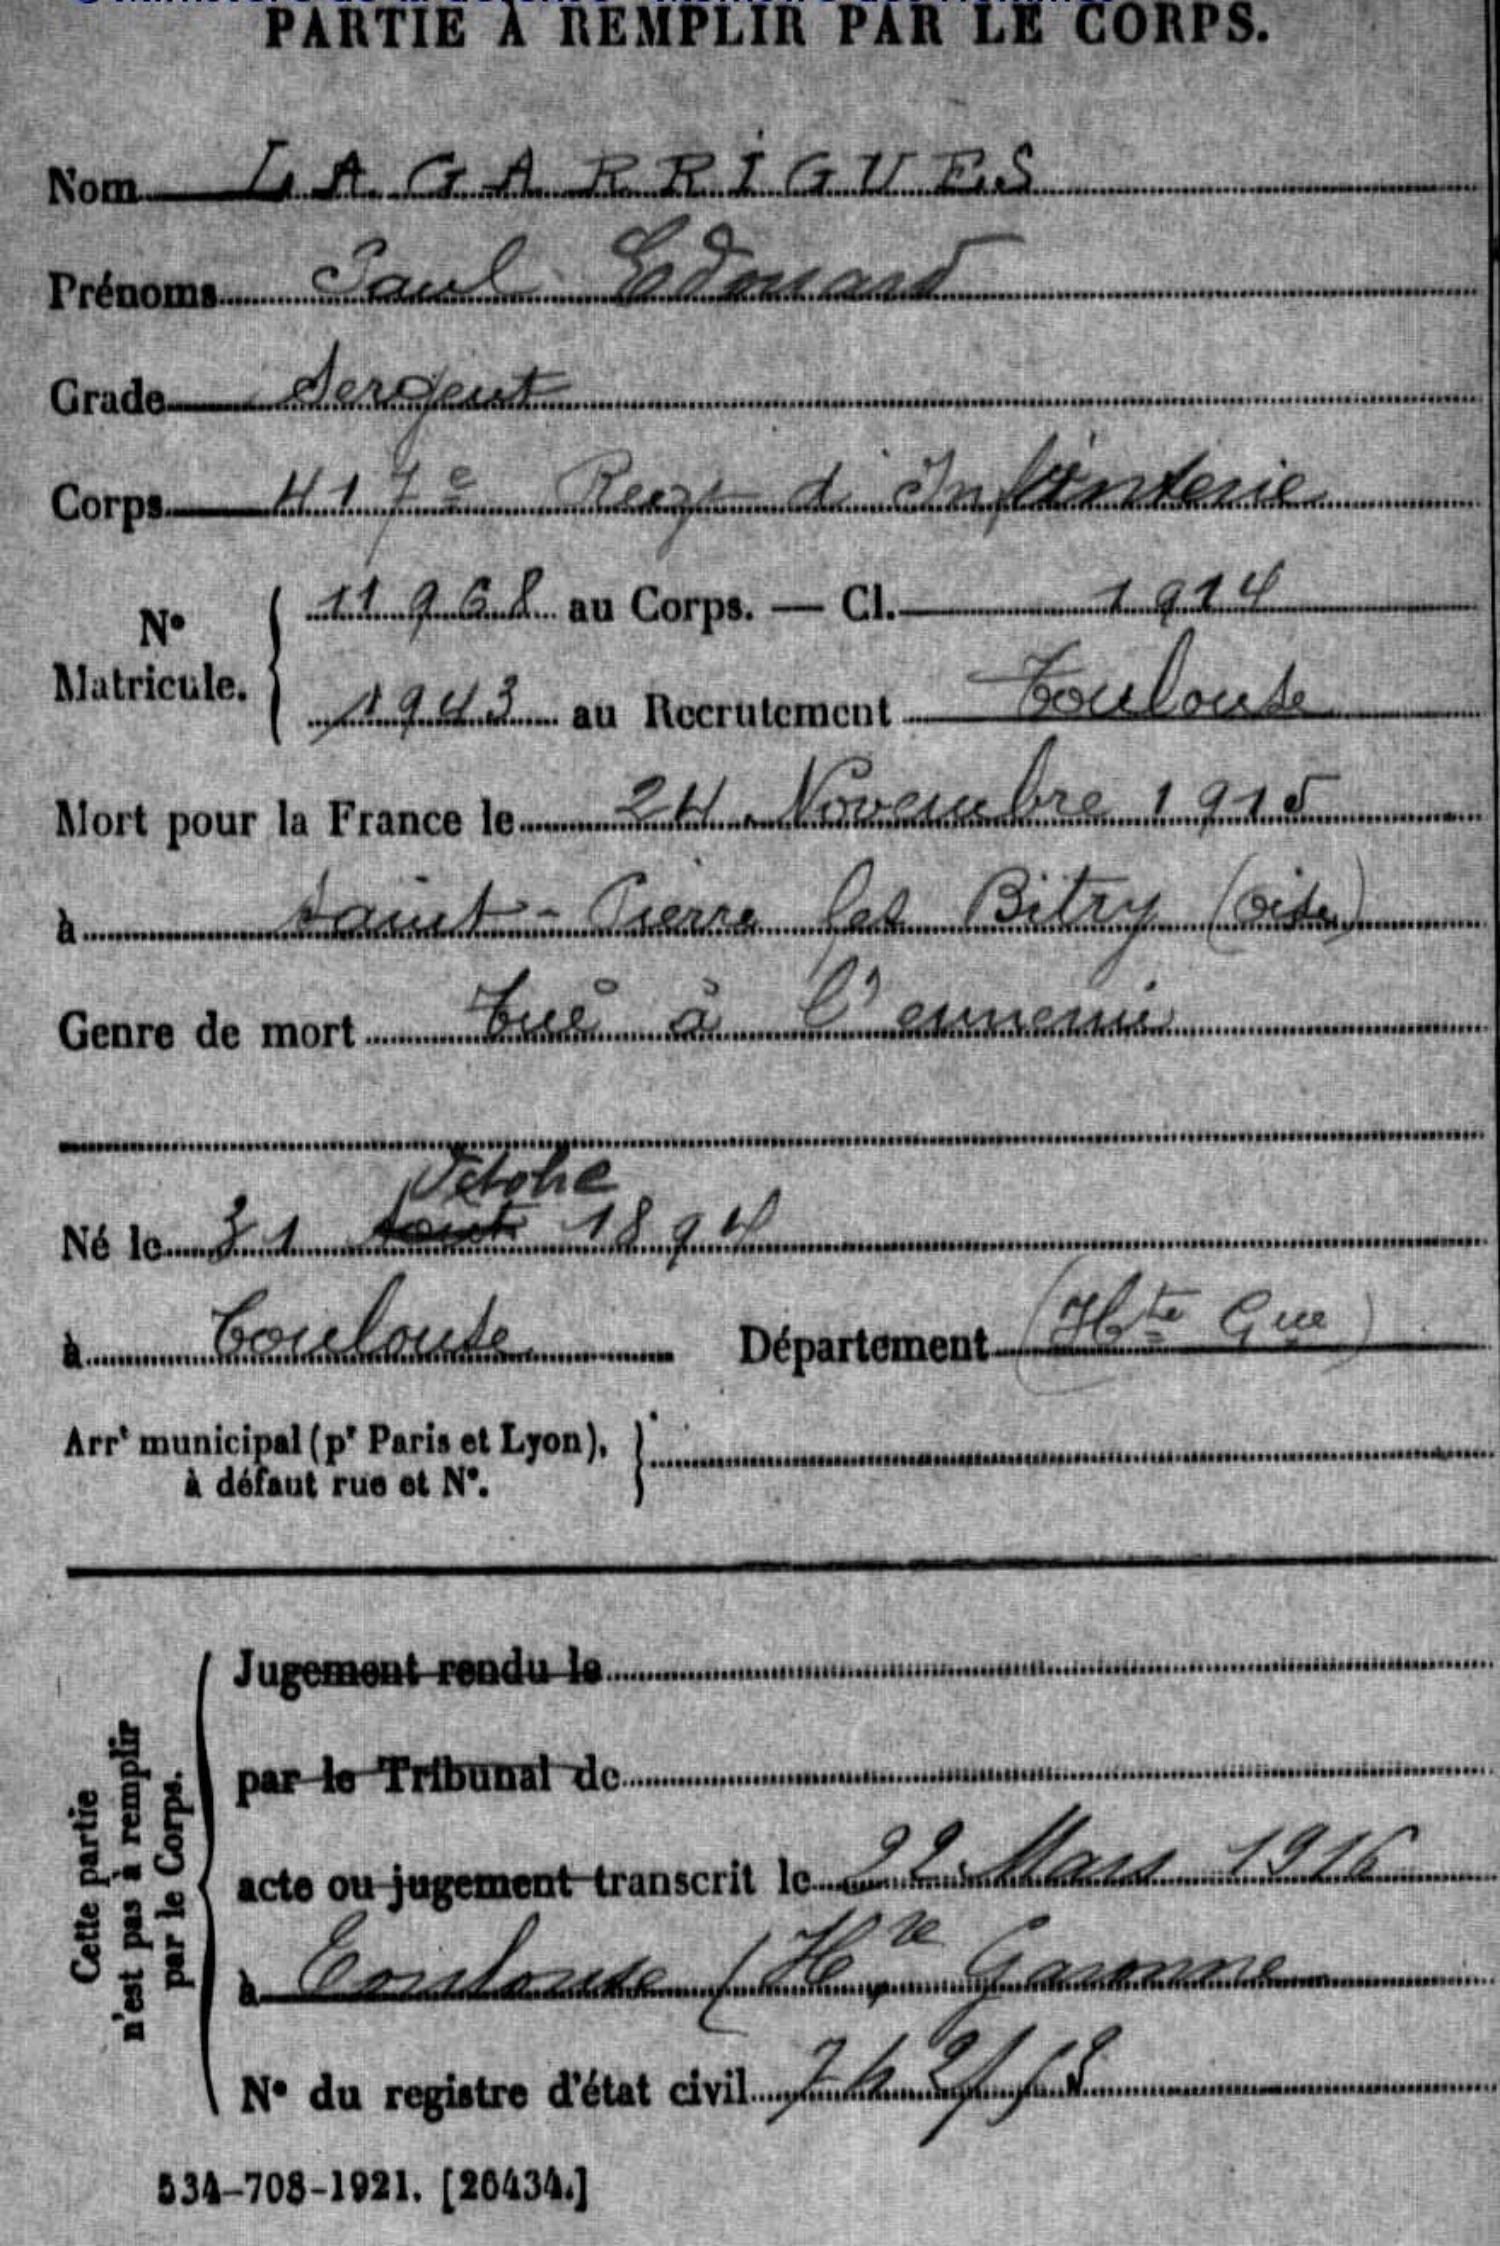 PARTIE À REMPLIR PAR LE CORPS.
Nom LAGARRIGUES
Prénoms Paul Edouard
Grade Sergent
Corps 417e Regt d'Infanterie
N° Matricule. 11968 au Corps. — Cl. 1914
1943 au Recrutement Toulouse
Mort pour la France le 24 Novembre 1915
à Saint-Pierre les Bitry (Oise)
Genre de mort Tué à l'ennemi
Octobre
Né le 31 Aout 1894
à Toulouse Département (Hte Gne)
Arrt municipal (pr Paris et Lyon),
à défaut rue et N°.
Cette partie
n'est pas à remplir
par le Corps.
Jugement rendu le
par le Tribunal de
acte ou jugement transcrit le 22 Mars 1916
à Toulouse (Hte Garonne
N° du registre d'état civil
534-708-1921. [26434.]